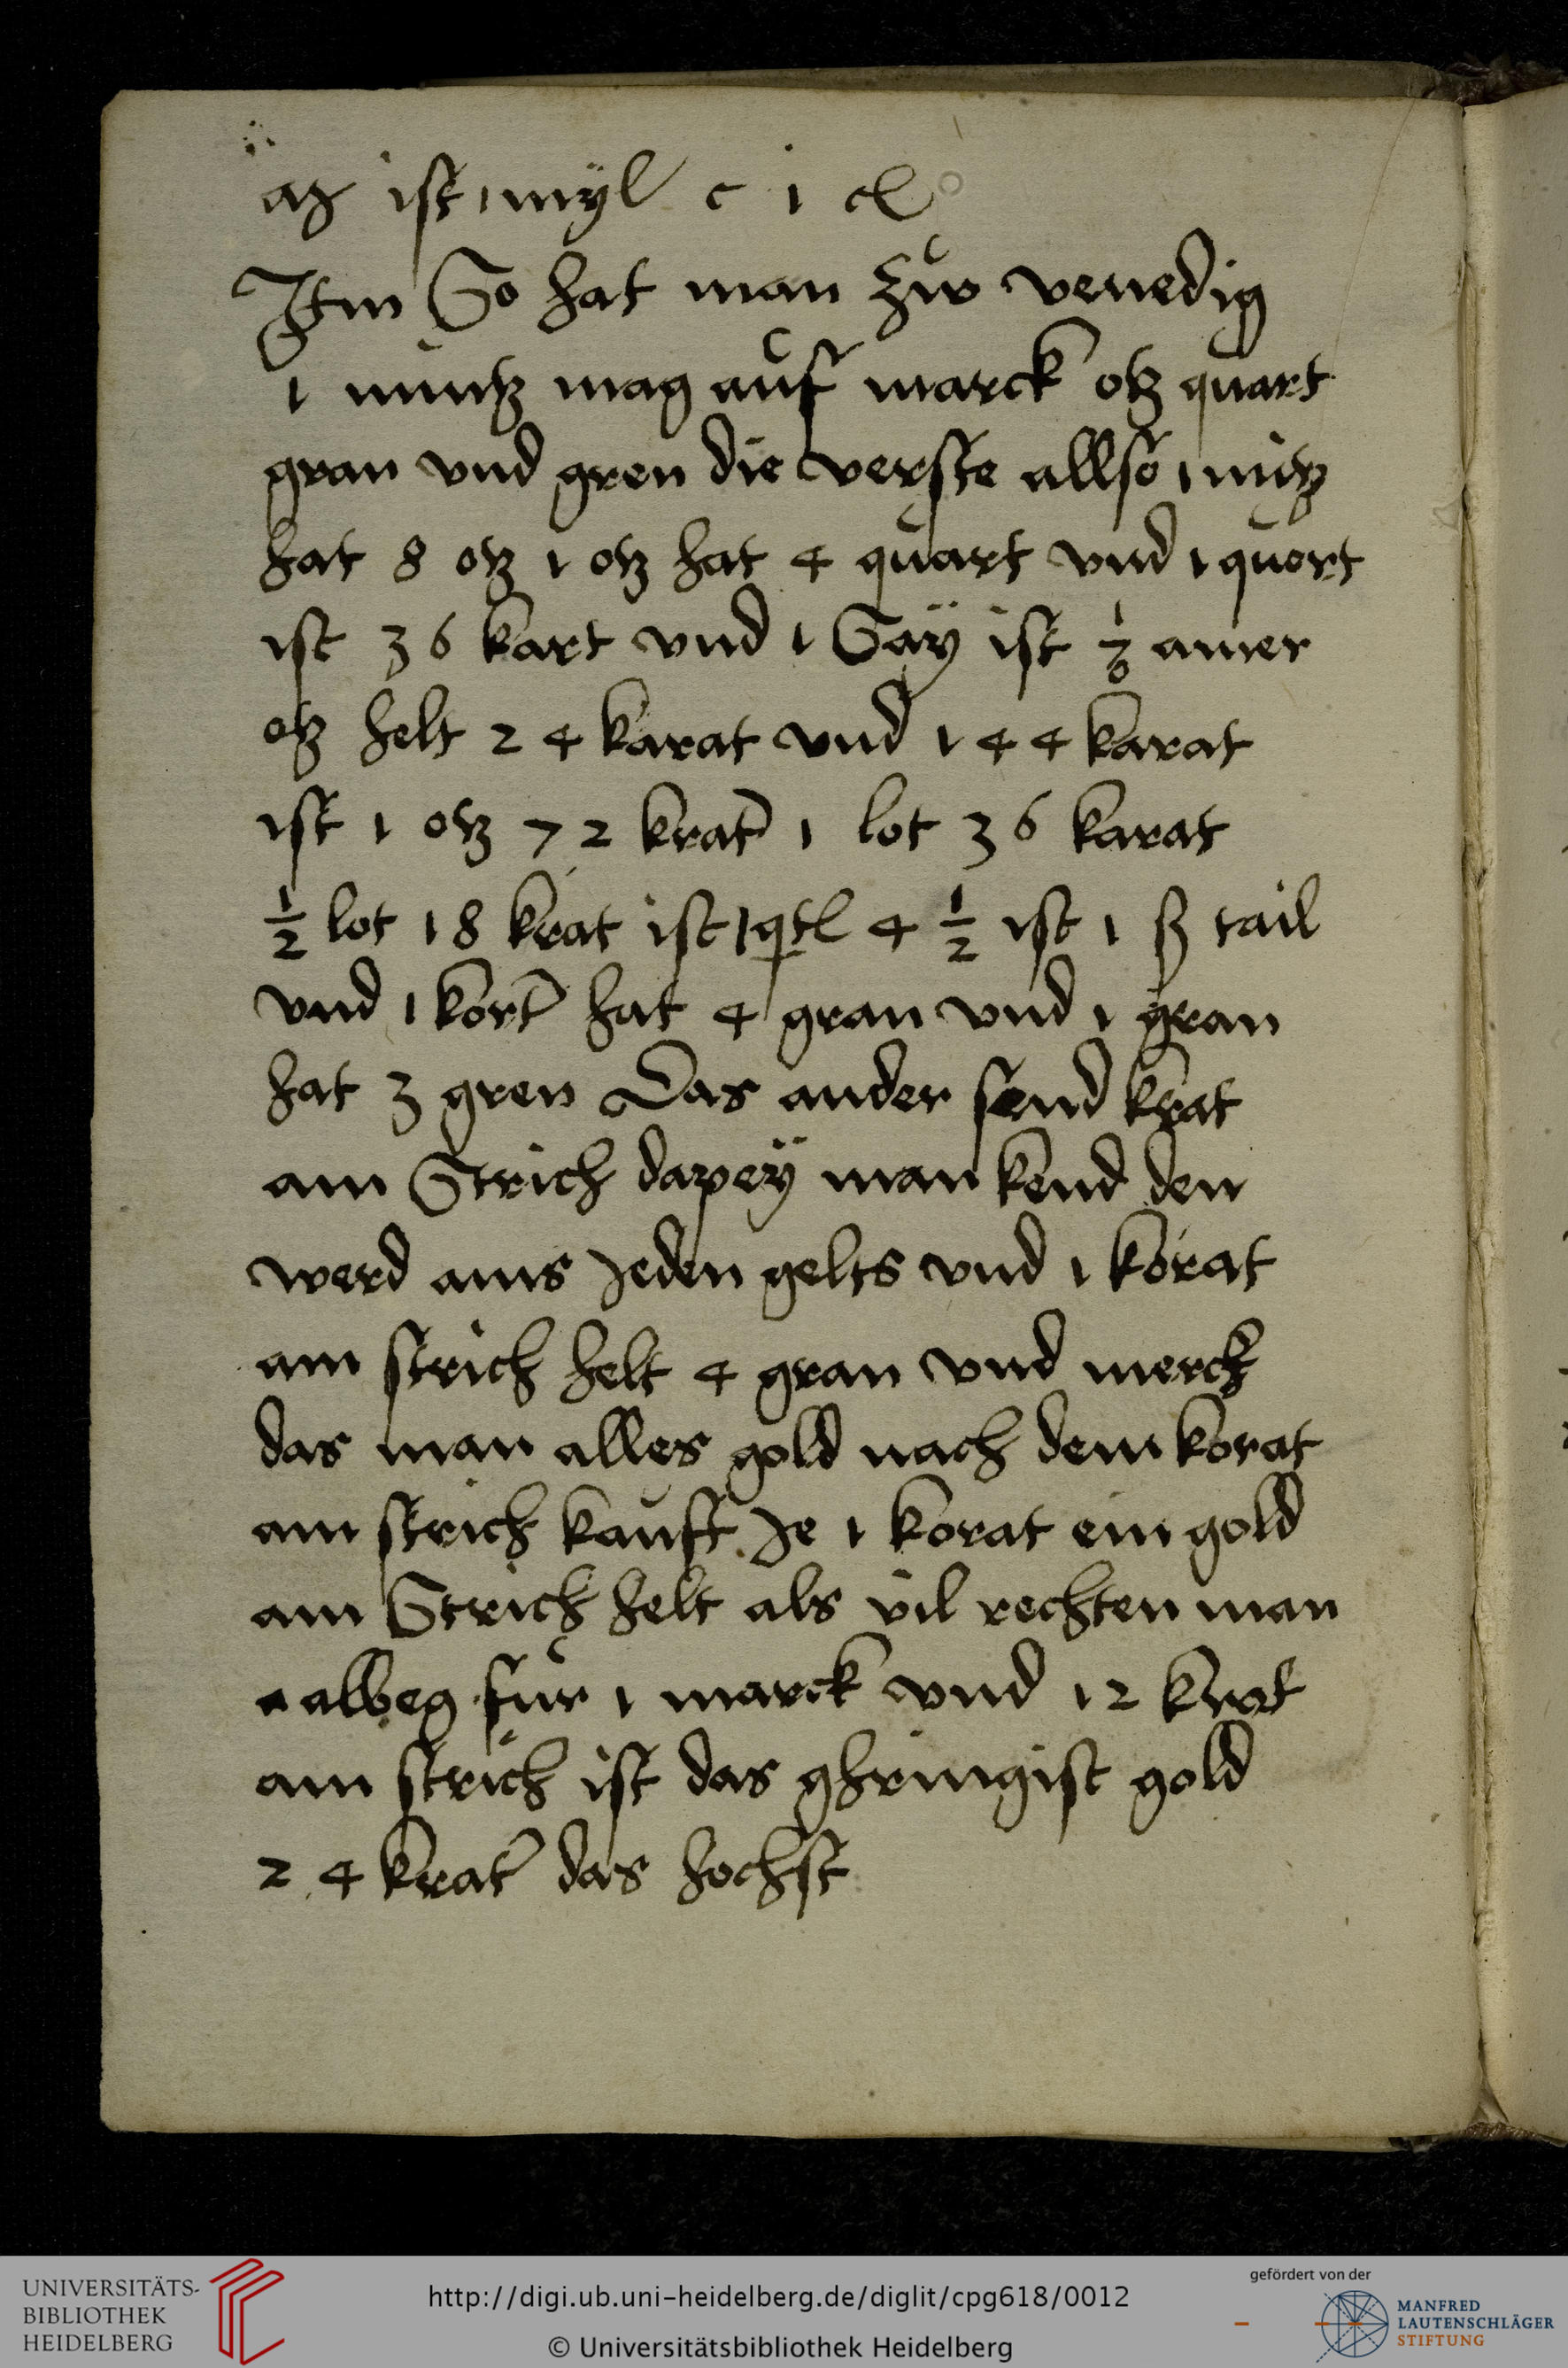 ist 1 myl c 1
Itm So hat man zuw venedig
1 müntz mag auf marck otz quart
gran vnd gren die verste allso 1
hat 8 otz 1 otz hat 4 quart vnd 1 quort
ist 36 kart vnd 1 Say ist amer
otz helt 24 karat vnd 144 karat
ist 1 otz 72 krat 1 lot 36 karat
1/2 lot 18 krat ist 1 qtl 4 1/2 ist 1 ß tail
vnd 1 kort hat 4 gran vnd 1 gran
hat 3 gren Das ander send krat
am Strich dapeÿ man kend den
werd ains Jeden gelts vnd 1 korat
am strich helt 4 gran vnd merck
das man alles gold nach dem korat
am strich kauft Je 1 korat ein gold
am Strich helt als vil rechten man
albeg für 1 marck vnd 12 krat
am strich ist das ghringist gold
24 krat das hochst
UNIVERSITÄTS-
BIBLIOTHEK
HEIDELBERG
http://digi.ub.uni-heidelberg.de/diglit/cpg618/0012
© Universitätsbibliothek Heidelberg
gefördert von der
MANFRED
LAUTENSCHLÄGER
STIFTUNG